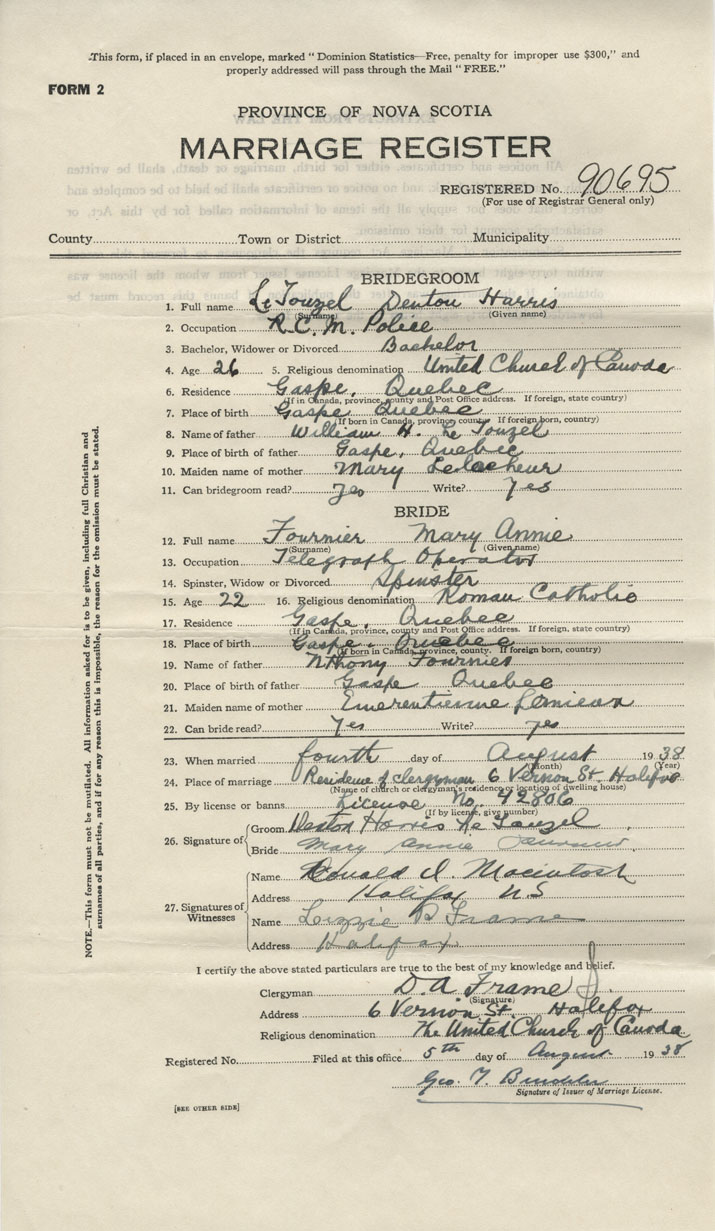 This form, if placed in an envelope, marked "Dominion Statistics—Free, penalty for improper use $300," and
properly addressed will pass through the Mail "FREE."
FORM 2
PROVINCE OF NOVA SCOTIA
MARRIAGE REGISTER
REGISTERED No. 90695
(For use of Registrar General only)
County Town or District Municipality
BRIDEGROOM
1. Full name Le Touzel Denton Harris
(Surname) (Given name)
2. Occupation R.C.M. Police
3. Bachelor, Widower or Divorced Bachelor
4. Age 26 5. Religious denomination United Church of Canada
6. Residence Gaspe, Quebec
(If in Canada, province, county and Post Office address. If foreign, state country)
7. Place of birth Gaspe Quebec
(If born in Canada, province, county. If foreign born, country)
8. Name of father William H. Le Touzel
9. Place of birth of father Gaspe, Quebec
10. Maiden name of mother Mary Lelacheur
11. Can bridegroom read? yes Write? yes
BRIDE
12. Full name Fournier Mary Annie
(Surname) (Given name)
13. Occupation Telegraph Operator
14. Spinster, Widow or Divorced Spinster
15. Age 22 16. Religious denomination Roman Catholic
17. Residence Gaspe, Quebec
(If in Canada, province, county and Post Office address. If foreign, state country)
18. Place of birth Gaspe, Quebec
(If born in Canada, province, county. If foreign born, country)
19. Name of father Fournier
20. Place of birth of father Gaspe Quebec
21. Maiden name of mother Emerentienne Lemieux
22. Can bride read? Yes Write? yes
23. When married fourth day of August 1938
(Month) (Year)
24. Place of marriage Residence of clergyman 6 Vernon St. Halifax
(Name of church or clergyman's residence or location of dwelling house)
25. By license or banns License No. 92806
(If by license, give number)
26. Signature of Groom Denton Harris Le Touzel
Bride Mary Annie Fournier
27. Signatures of Witnesses Name Donald Macintosh
Address Halifax N.S
Name Lizzie B Frame
Address Halifax
I certify the above stated particulars are true to the best of my knowledge and belief.
Clergyman D. A Frame
(Signature)
Address 6 Vernon St. Halifax
Religious denomination The United Church of Canada
Registered No. Filed at this office 5th day of August 1938
Geo. T.
Signature of Issuer of Marriage License.
[SEE OTHER SIDE]
NOTE.—This form must not be mutilated. All information asked for is to be given, including full Christian and
surnames of all parties, and if for any reason this is impossible, the reason for the omission must be stated.